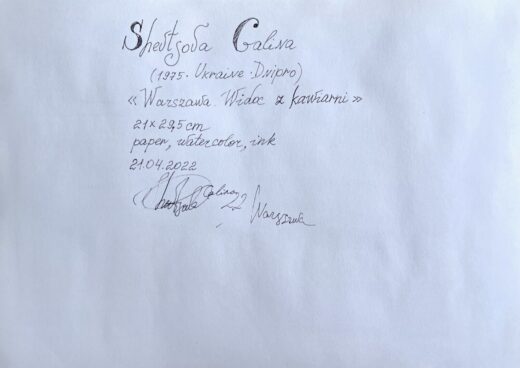 Shevtsova Galina
(1975. Ukraine. Dnipro)
«Warszawa. Widoc z kawiarni»
21×29,5 cm
paper, watercolor, ink
21.04.2022
Galina 22 Warszawa